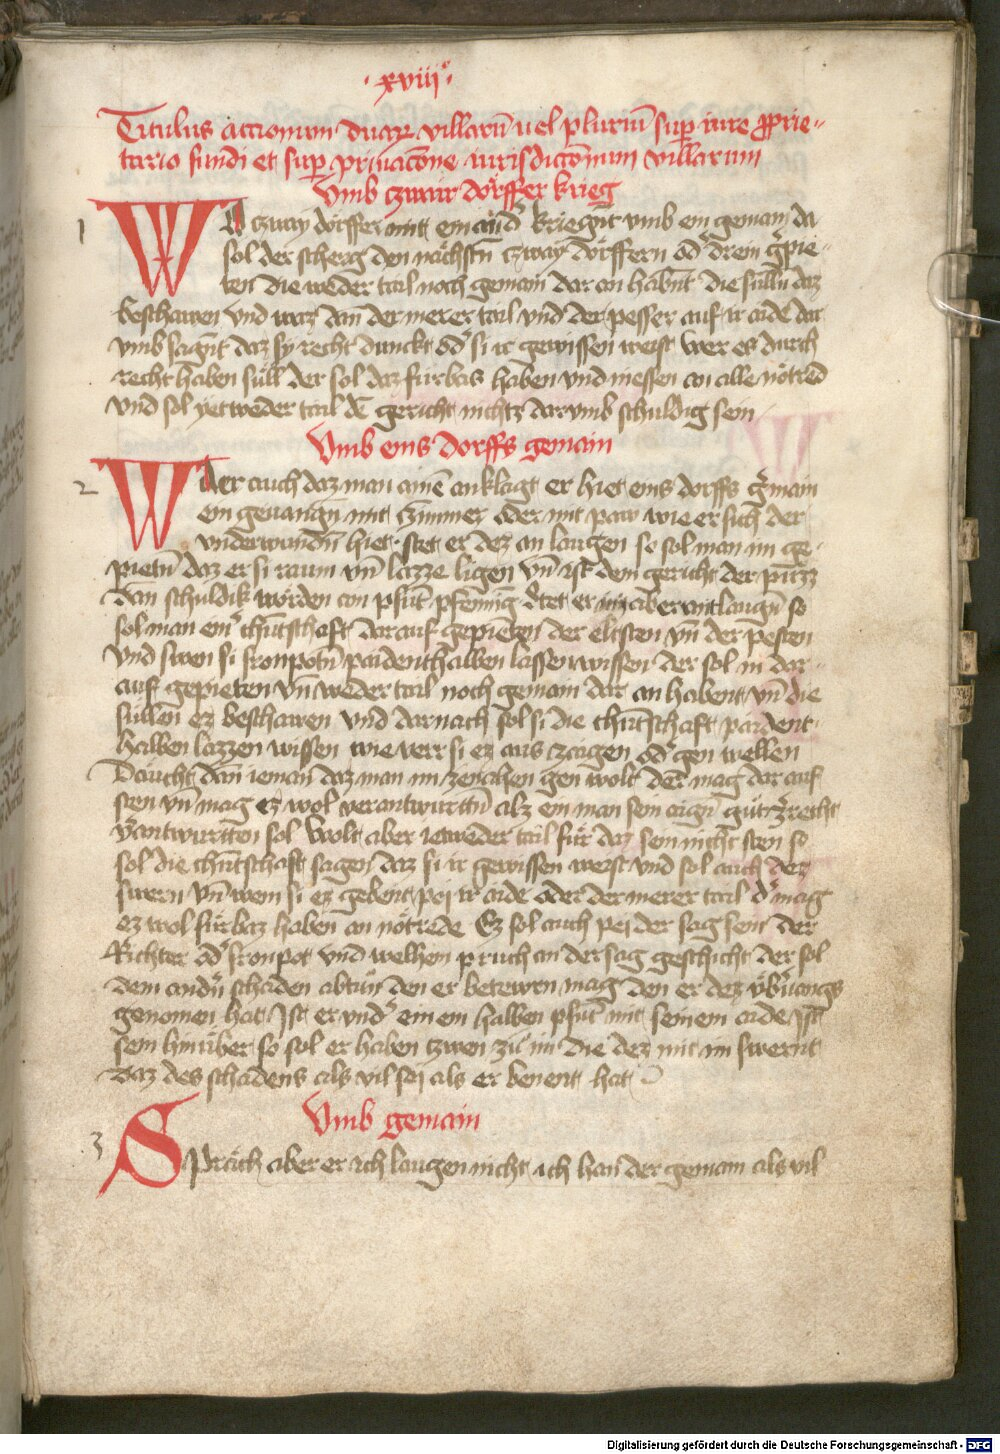 ·xviii°·
Titulus actionum duaꝝ villarū vel pluriū sup iure ꝓprie-
tario fundi et sup priuacōne iurisdictōnum villarum
Vmb zwair dörffer krieg
1 Wa zway dörffer mit ein and' kriegnt vmb ein gemain da
sol der scherg den nächstn zway dörffern od' drein g'pie-
ten die weder tail noch gemain dar an habnt die sülln daz
beschawen vnd waz dan der merer tail vnd der pesser auf ir aide dar
vmb sagnt daz sy recht dunckt od' si ir gewissen weist wer es durch
recht haben süll der sol daz fürbas haben vnd niessen an alle nötred
vnd sol yetweder tail dē gericht nichtz darvmb schuldig sein
Vmb eins dorffs gemain
2 Wer auch daz man ainē anklagt er hiet eins dorffs g'main
ein geuangn mit zimmer oder mit paw wie er sich der
vnderwundn hiet stet er dez an laugen so sol man im ge-
pietn daz er si raum vn lazze ligen vn ist dem gericht der půzz
dan schuldik worden an pfūt pfennig Stet er im aber mit laugn so
sol man ein' chūtschaft darauf gepieten der eltsten vn der pesten
vnd swen si fronpotn paidenthalben lassen wissen der sol in dar-
auf gepieten vn weder tail noch gemain dar an habent vn die
süllen ez beschawen vnd darnach sol si die chūtschaft paident-
halben lazzen wissen wie verr si ez aus zaigen od' gen wellen
Däucht dan ieman daz man im ze nahen gen wolt der mag dar auf
sten vn mag ez wol verantwurttn alz ein man sein aign gut ze recht
v'antwurtten sol Wolt aber ietweder tail für daz sein nicht sten so
sol die chūtschaft sagen daz si ir gewissen weist vnd sol auch dez
swern vn wem si ez gebent pei ir aide oder der merer tail d' mag
ez wol fürbaz haben an nötrede Ez sol auch pei der sag sein der
Richter od' fronpot vnd welhem pruch an der sag geschicht der sol
dem andn schaden abtůn den er betewrn mag den er dez vbuangs
genomen hat Ist er vnd' einem halben pfūt mit seinem aide Ist
sein hinüber so sol er haben zwen zu im die dez mit im swernt
daz des schadens als vil sei als er benent hat
Vmb gemain
3 Spräch aber er ich laugen nicht ich han der gemain als vil
Digitalisierung gefördert durch die Deutsche Forschungsgemeinschaft - DFG